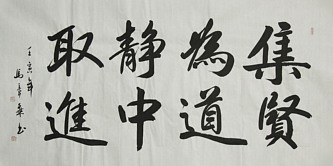 集賢
為道
靜中
取進
壬寅年
馬章乘書